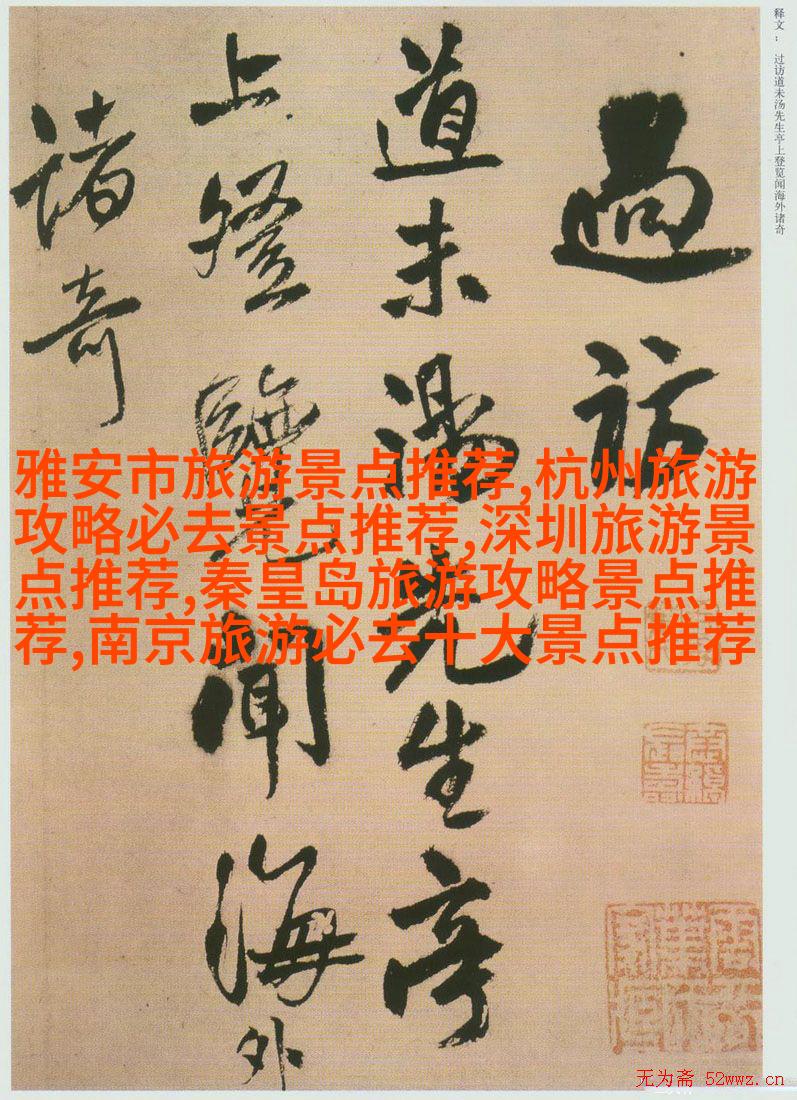 释文：过访道未汤先生亭上登览闻海外诸奇
過訪
道未湯先生亭
上登覽聞海外
諸奇
雅安市旅游景点推荐,杭州旅游
攻略必去景点推荐,深圳旅游景
点推荐,秦皇岛旅游攻略景点推
荐,南京旅游必去十大景点推荐
无为斋 52wwz.cn